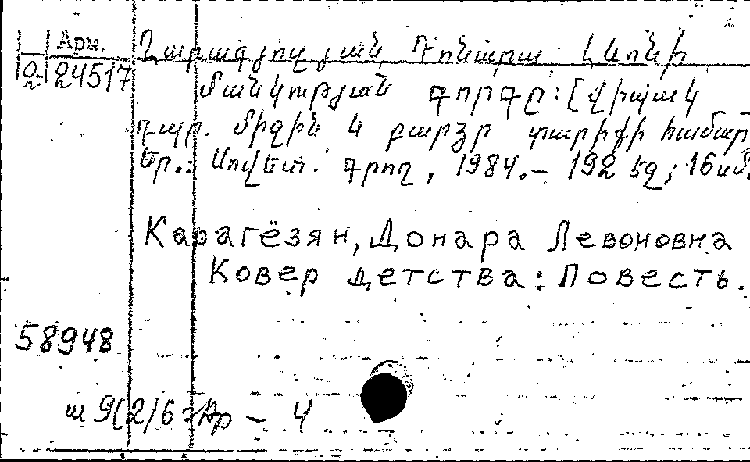 Арм.
Ղարագյոզյան, Դոնարա Լևոնի
Զ 24517
Մանկության գորգը: [Վիպակ
դպր. միջին և բարձր տարիքի համար
Եր.: Սովետ. գրող, 1984. – 192 էջ; 16 սմ.
Карагёзян, Донара Левоновна
Ковер детства: Повесть.
58948
ш 9(2)6 = Ар – 4